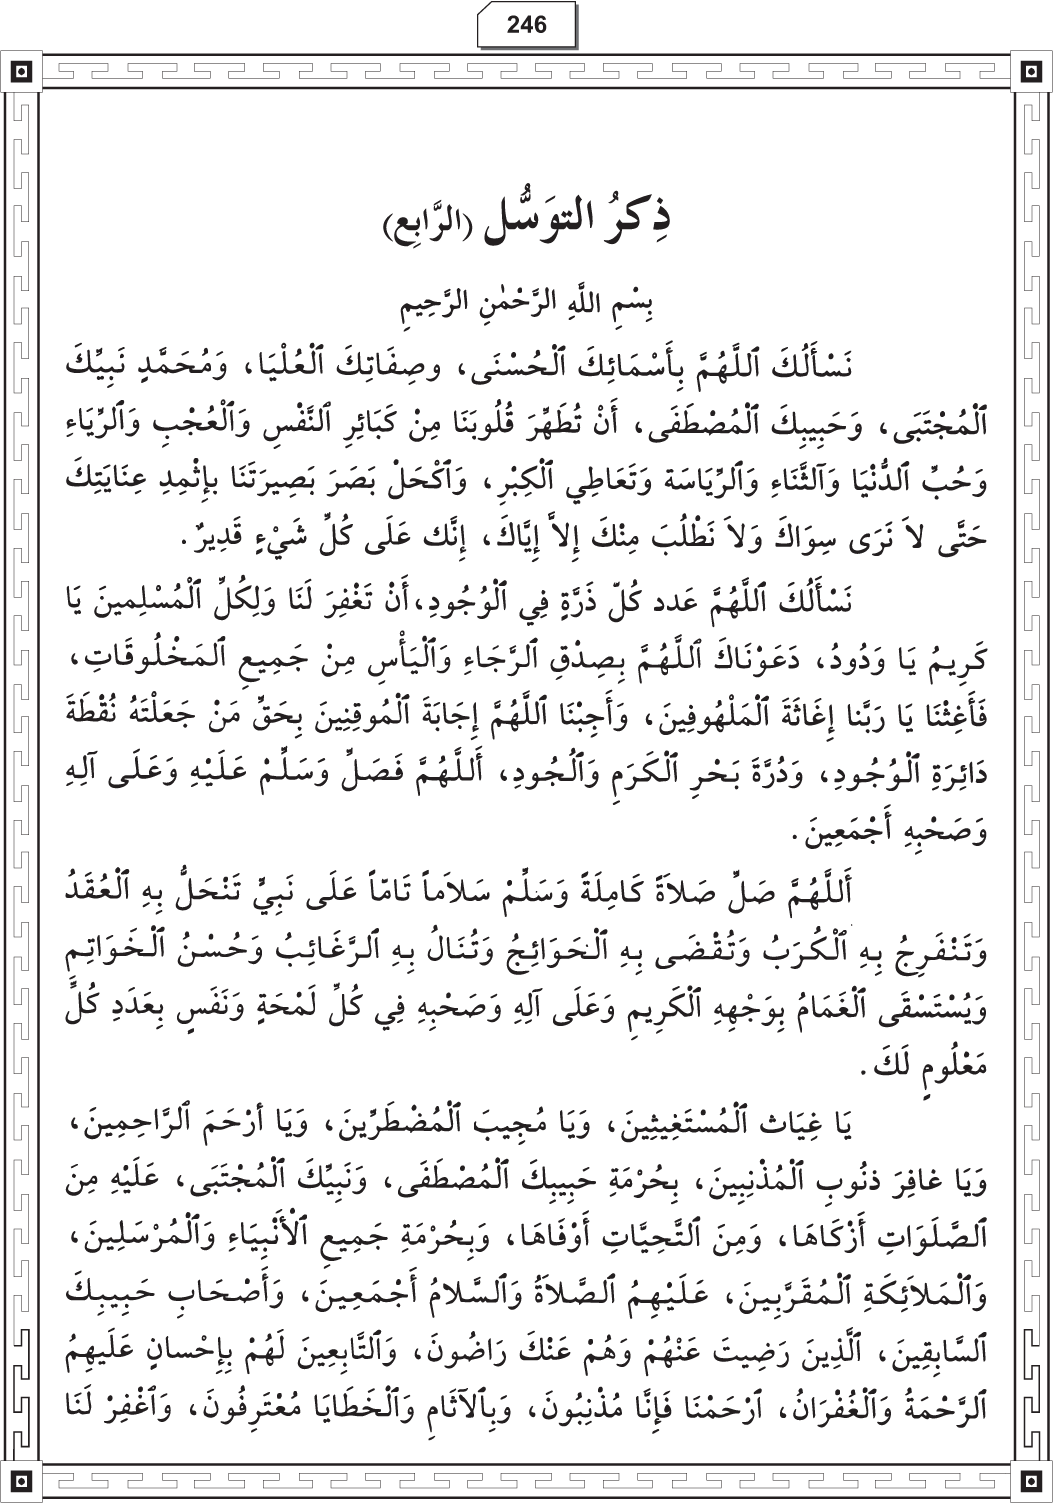 246
ذِكرُ التوَسُّل (الرَّابِع)
بِسْمِ اللَّهِ الرَّحْمٰنِ الرَّحِيمِ
نَسْأَلُكَ ٱللَّهُمَّ بِأَسْمَائِكَ ٱلْحُسْنَى، وصِفَاتِكَ ٱلْعُلْيَا، وَمُحَمَّدٍ نَبِيِّكَ
ٱلْمُجْتَبَى، وَحَبِيبِكَ ٱلْمُصْطَفَى، أَنْ تُطَهِّرَ قُلُوبَنَا مِنْ كَبَائِرِ ٱلنَّفْسِ وَٱلْعُجْبِ وَٱلرِّيَاءِ
وَحُبِّ ٱلدُّنْيَا وَٱلثَّنَاءِ وَٱلرِّيَاسَة وَتَعَاطِي ٱلْكِبْرِ، وَٱكْحَلْ بَصَرَ بَصِيرَتَنَا بِإِثْمِدِ عِنَايَتِكَ
حَتَّى لاَ نَرَى سِوَاكَ وَلاَ نَطْلُبَ مِنْكَ إِلاَّ إِيَّاكَ، إِنَّك عَلَى كُلِّ شَيْءٍ قَدِيرٌ.
نَسْأَلُكَ ٱللَّهُمَّ عَدد كُلّ ذَرَّةٍ فِي ٱلْوُجُودِ،أَنْ تَغْفِرَ لَنَا وَلِكُلِّ ٱلْمُسْلِمينَ يَا
كَرِيمُ يَا وَدُودُ، دَعَوْنَاكَ ٱللَّهُمَّ بِصِدْقِ ٱلرَّجَاءِ وَٱلْيَأْسِ مِنْ جَمِيعِ ٱلمَخْلُوقَاتِ،
فَأَغِثْنَا يَا رَبَّنا إِغَاثَةَ ٱلْمَلْهُوفِينَ، وَأَجِبْنَا ٱللَّهُمَّ إِجَابَةَ ٱلْمُوقِنِينَ بِحَقِّ مَنْ جَعَلْتَهُ نُقْطَةَ
دَائِرَةِ ٱلْوُجُودِ، وَدُرَّةَ بَحْرِ ٱلْكَرَمِ وَٱلْجُودِ، أَللَّهُمَّ فَصَلِّ وَسَلِّمْ عَلَيْهِ وَعَلَى آلِهِ
وَصَحْبِهِ أَجْمَعِينَ.
أَللَّهُمَّ صَلِّ صَلاَةً كَامِلَةً وَسَلِّمْ سَلاَماً تَامّاً عَلَى نَبِيٍّ تَنْحَلُّ بِهِ ٱلْعُقَدُ
وَتَنْفَرِجُ بِهِ ٱلْكُرَبُ وَتُقْضَى بِهِ ٱلْحَوَائِجُ وَتُنَالُ بِهِ ٱلرَّغَائِبُ وَحُسْنُ ٱلْخَوَاتِمِ
وَيُسْتَسْقَى ٱلْغَمَامُ بِوَجْهِهِ ٱلْكَرِيمِ وَعَلَى آلِهِ وَصَحْبِهِ فِي كُلِّ لَمْحَةٍ وَنَفَسٍ بِعَدَدِ كُلِّ
مَعْلُومٍ لَكَ.
يَا غِيَاث ٱلْمُسْتَغِيثِينَ، وَيَا مُجِيبَ ٱلْمُضْطَرِّينَ، وَيَا أرْحَمَ ٱلرَّاحِمِينَ،
وَيَا غافِرَ ذنُوبِ ٱلْمُذْنِبِينَ، بِحُرْمَةِ حَبِيبِكَ ٱلْمُصْطَفَى، وَنَبِيِّكَ ٱلْمُجْتَبَى، عَلَيْهِ مِنَ
ٱلصَّلَوَاتِ أَزْكَاهَا، وَمِنَ ٱلتَّحِيَّاتِ أَوْفَاهَا، وَبِحُرْمَةِ جَمِيعِ ٱلْأَنْبِيَاءِ وَٱلْمُرْسَلِينَ،
وَٱلْمَلاَئِكَةِ ٱلْمُقَرَّبِينَ، عَلَيْهِمُ ٱلصَّلاَةُ وَٱلسَّلامُ أَجْمَعِينَ، وَأَصْحَابِ حَبِيبِكَ
ٱلسَّابِقِينَ، ٱلَّذِينَ رَضِيتَ عَنْهُمْ وَهُمْ عَنْكَ رَاضُونَ، وَٱلتَّابِعِينَ لَهُمْ بِإِحْسانٍ عَلَيهِمُ
ٱلرَّحْمَةُ وَٱلْغُفْرَانُ، ٱرْحَمْنَا فَإِنَّا مُذْنِبُونَ، وَبِٱلآثَامِ وَٱلْخَطَايَا مُعْتَرِفُونَ، وَٱغْفِرْ لَنَا